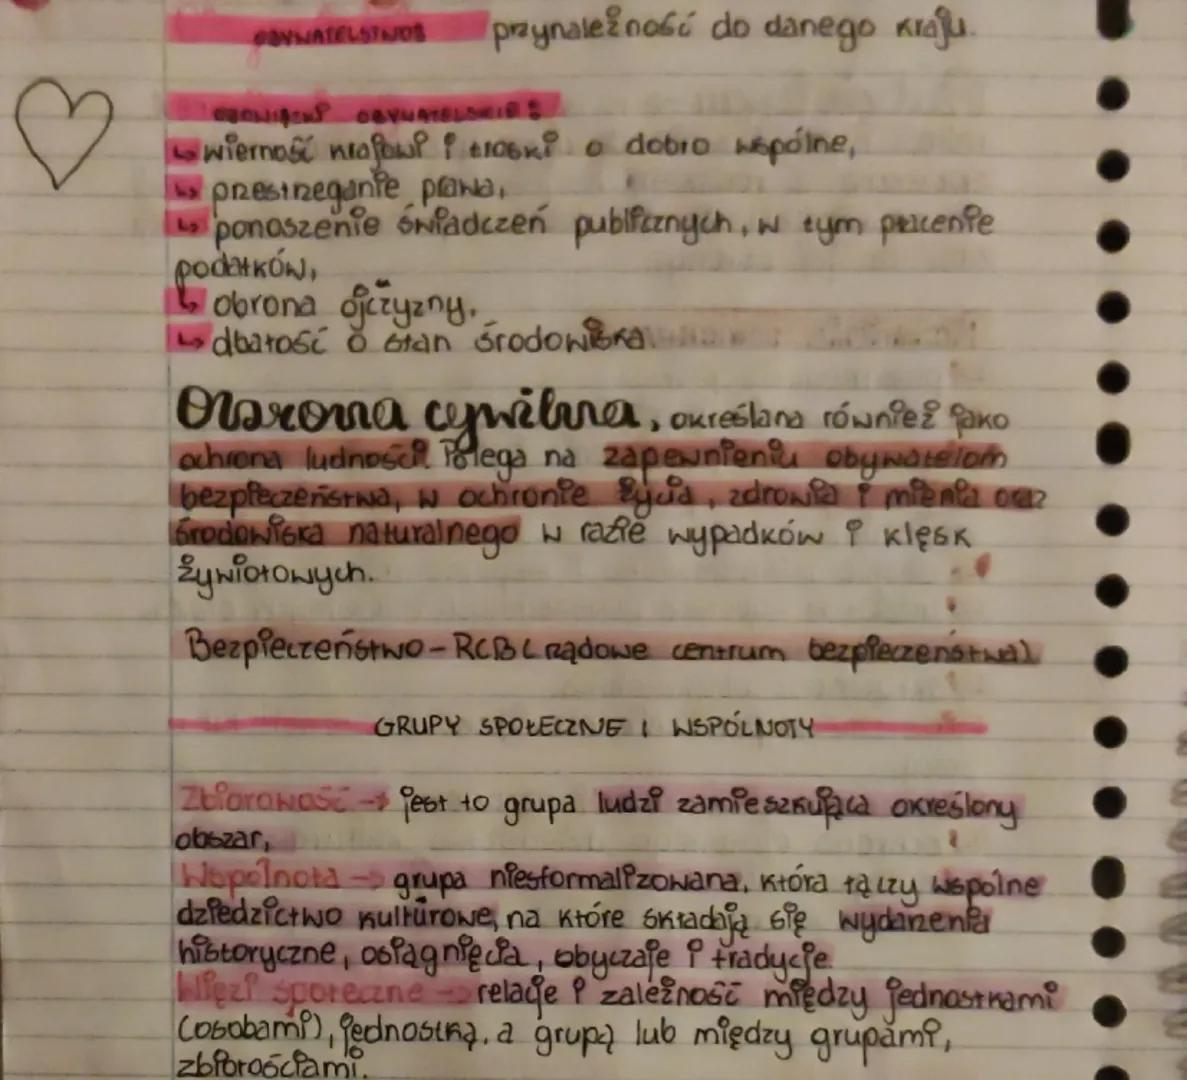 OBYWATELSTWOS przynależność do danego kraju.
OBOWIĄZKI OBYWATELSKIE:
↳ wierność krajowi i troski o dobro wspólne,
↳ przestrzeganie prawa,
↳ ponoszenie świadczeń publicznych, w tym płacenie
podatków,
↳ obrona ojczyzny,
↳ dbałość o stan środowiska
Obrona cywilna, określana również jako
ochrona ludności. Polega na zapewnieniu obywatelom
bezpieczeństwa, w ochronie życia, zdrowia i mienia oraz
środowiska naturalnego w razie wypadków i klęsk
żywiołowych.
Bezpieczeństwo - RCB (rządowe centrum bezpieczeństwa)
GRUPY SPOŁECZNE I WSPÓLNOTY
Zbiorowość → jest to grupa ludzi zamieszkująca określony
obszar,
Wspólnota → grupa niesformalizowana, która łączy wspólne
dziedzictwo kulturowe, na które składają się wydarzenia
historyczne, osiągnięcia, obyczaje i tradycje.
Więzi społeczne → relacje i zależność między jednostkami
(osobami), jednostką, a grupą lub między grupami,
zbiorościami.